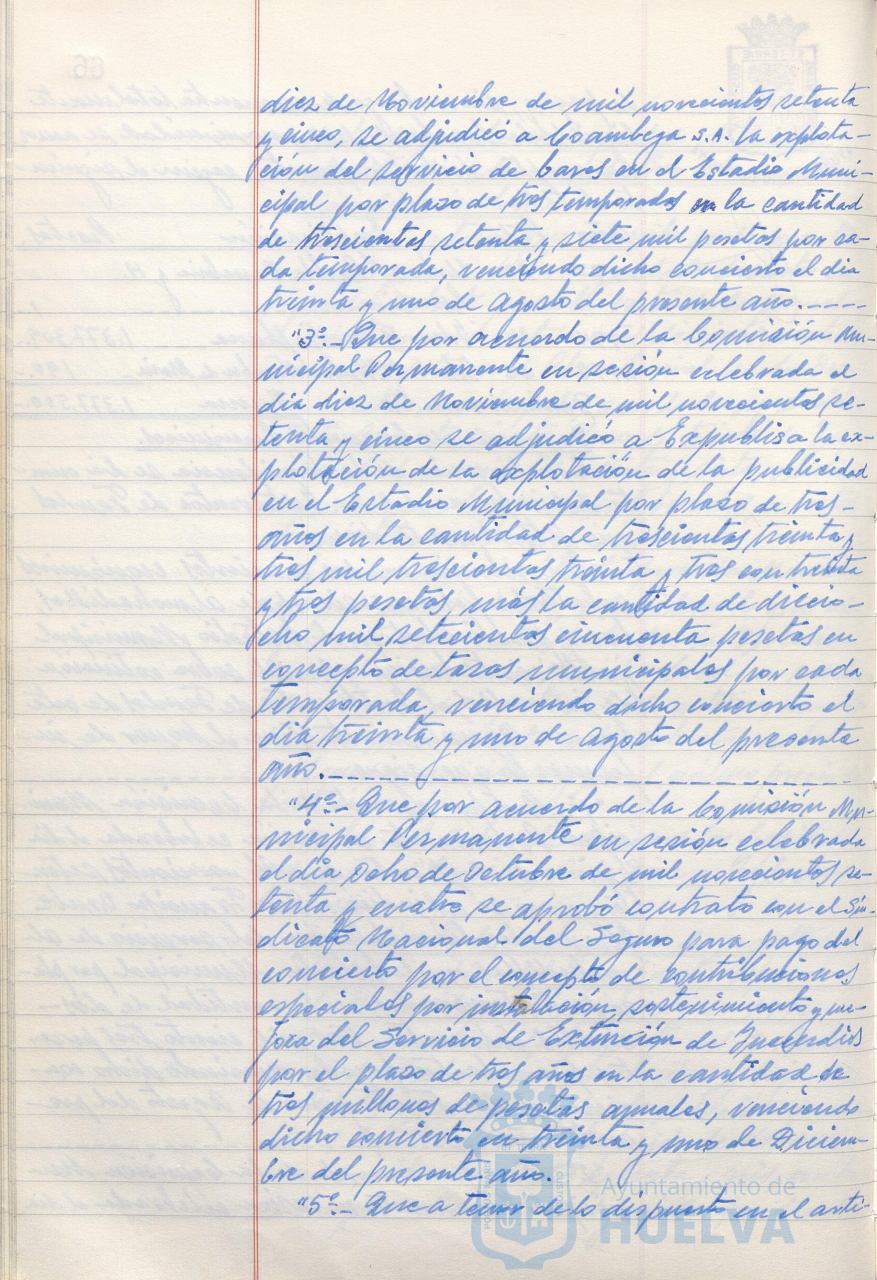 diez de Noviembre de mil novecientos setenta
y cinco, se adjudicó a Coambega S.A. la explota-
ción del servicio de bares en el Estadio Muni-
cipal por plazo de tres temporadas en la cantidad
de trescientas setenta y siete mil pesetas por ca-
da temporada, venciendo dicho concierto el día
treinta y uno de Agosto del presente año.----
"3º.- Que por acuerdo de la Comisión Mu-
nicipal Permanente en sesión celebrada el
día diez de Noviembre de mil novecientos se-
tenta y cinco se adjudicó a Expublisa la ex-
plotación de la explotación de la publicidad
en el Estadio Municipal por plazo de tres-
años en la cantidad de trescientas treinta y
tres mil trescientas treinta y tres con treinta
y tres pesetas, más la cantidad de diecio-
cho mil setecientas cincuenta pesetas en
concepto de tasas municipales por cada
temporada, venciendo dicho concierto el
día treinta y uno de Agosto del presente
año.--------------------
"4º.- Que por acuerdo de la Comisión Mu-
nicipal Permanente en sesión celebrada
el día ocho de Octubre de mil novecientos se-
tenta y cuatro se aprobó contrato con el Sin-
dicato Nacional del Seguro para pago del
concierto por el concepto de contribuciones
especiales por instalación, sostenimiento y me-
jora del Servicio de Extinción de Incendios
por el plazo de tres años en la cantidad de
tres millones de pesetas anuales, venciendo
dicho concierto en treinta y uno de Diciem-
bre del presente año.
"5º.- Que a tenor de lo dispuesto en el artí-
Ayuntamiento de
HUELVA